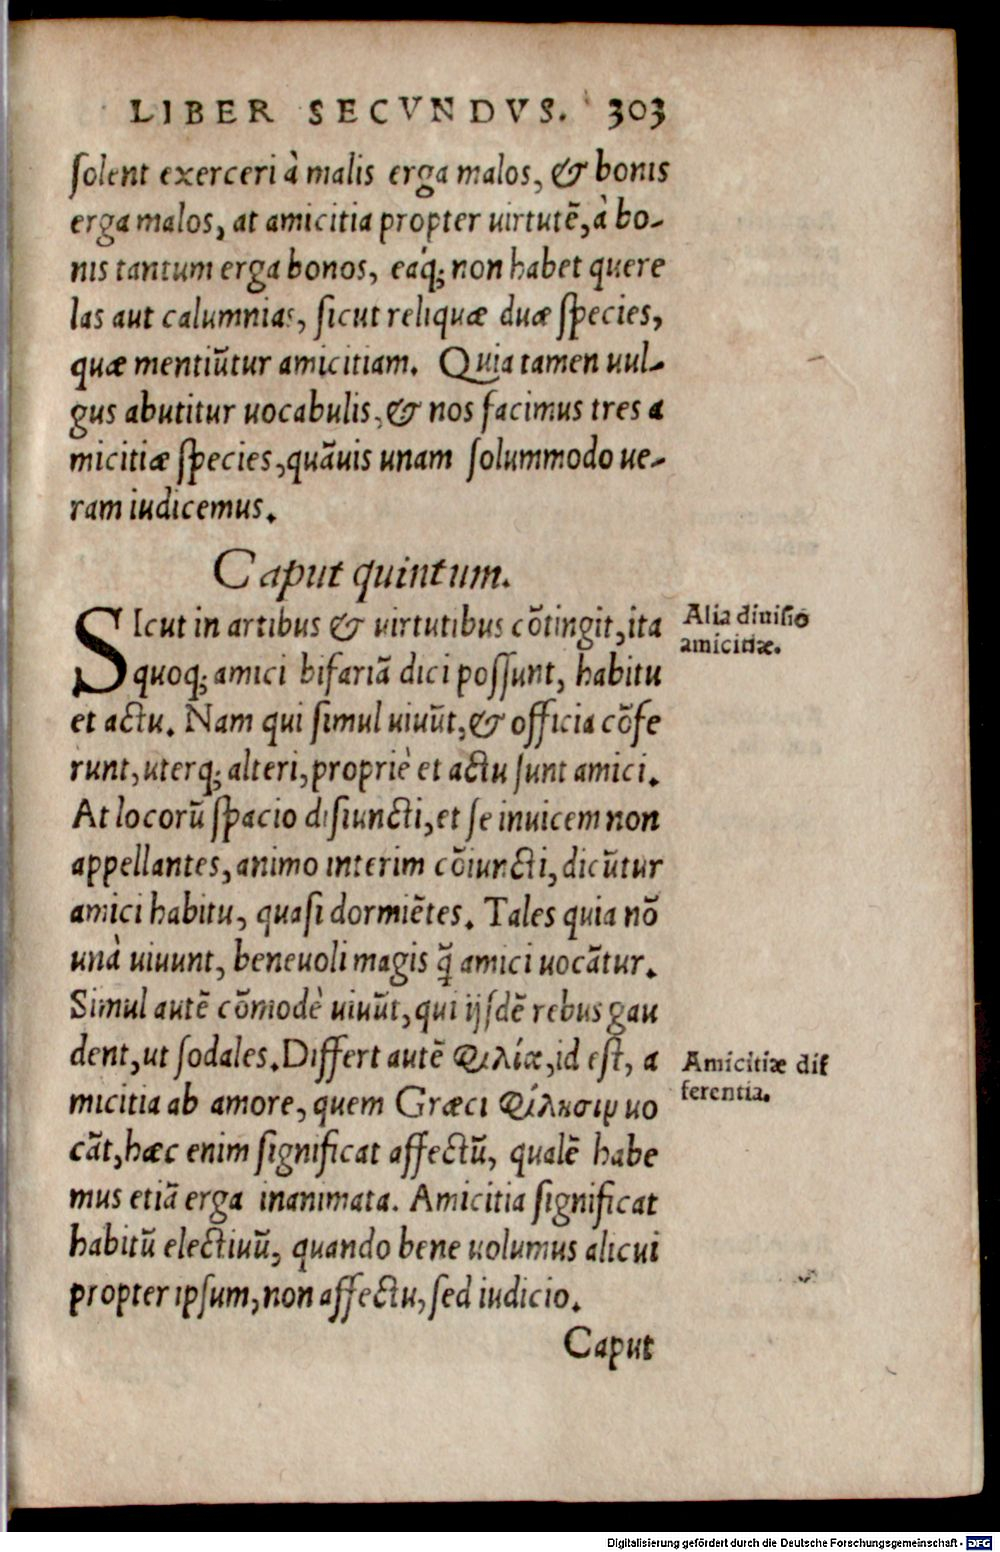 LIBER SECVNDVS. 303
ſolent exerceri à malis erga malos, & bonis
erga malos, at amicitia propter uirtutē, à bo-
nis tantum erga bonos, eaq́; non habet quere
las aut calumnias, ſicut reliquæ duæ ſpecies,
quæ mentiūtur amicitiam. Quia tamen uul-
gus abutitur uocabulis, & nos facimus tres a
micitiæ ſpecies, quāuis unam ſolummodo ue-
ram iudicemus.
Caput quintum.
SIcut in artibus & uirtutibus cōtingit, ita
quoq; amici bifariā dici poſſunt, habitu
et actu. Nam qui ſimul uiuūt, & officia cōfe
runt, uterq; alteri, propriè et actu ſunt amici.
At locorū ſpacio diſiuncti, et ſe inuicem non
appellantes, animo interim cōiuncti, dicūtur
amici habitu, quaſi dormiētes. Tales quia nō
unà uiuunt, beneuoli magis q̃ amici uocātur.
Simul autē cōmodè uiuūt, qui ijſdē rebus gau
dent, ut ſodales. Differt autē φιλία, id eſt, a
micitia ab amore, quem Græci φίλησιμ uo
cāt, hæc enim ſignificat affectū, qualē habe
mus etiā erga inanimata. Amicitia ſignificat
habitū electiuū, quando bene uolumus alicui
propter ipſum, non affectu, ſed iudicio.
Caput
Alia diuiſio
amicitiæ.
Amicitiæ dif
ferentia.
Digitalisierung gefördert durch die Deutsche Forschungsgemeinschaft - DFG